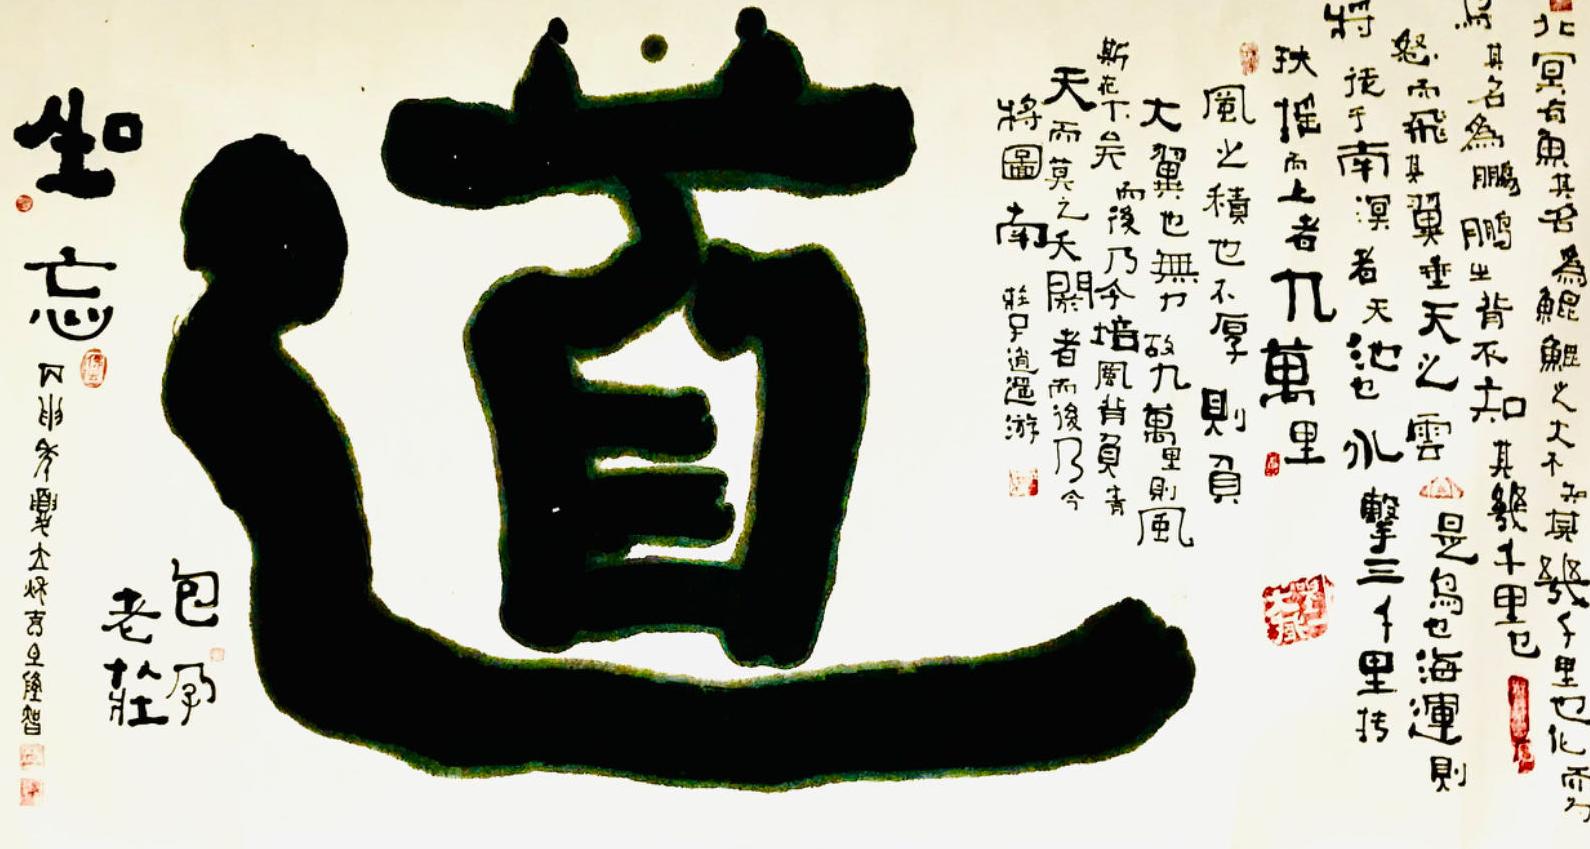 北冥有魚其名為鯤鯤之大不知其幾千里也化而為
鳥其名為鵬鵬之背不知其幾千里也
怒而飛其翼垂天之雲是鳥也海運則
將徙于南溟者天池也水擊三千里摶
扶搖而上者九萬里
風之積也不厚則負
大翼也無力故九萬里則風
斯在下矣而後乃今培風背負青
天而莫之夭閼者而後乃今
將圖南
莊子逍遥游
道
包孕
老莊
坐忘